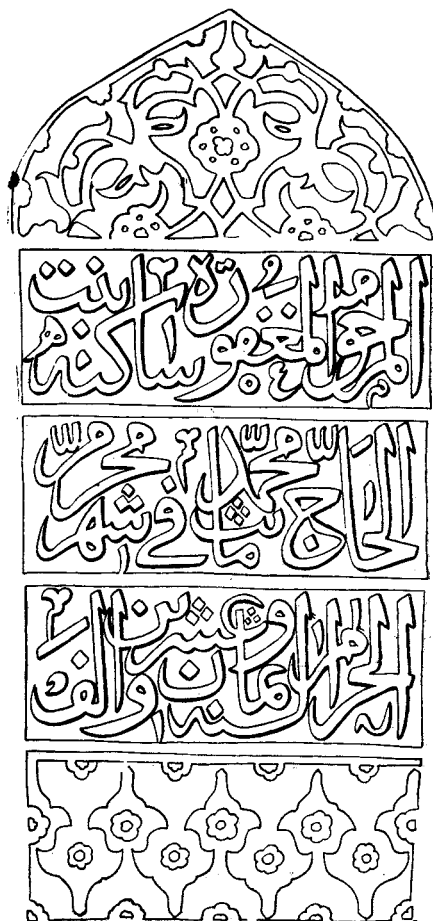 المرحومه المغفوره ساكنه بنت
الحاج محمد ماتت في شهر محرم
الحرام سنه ثمان وعشرين والف